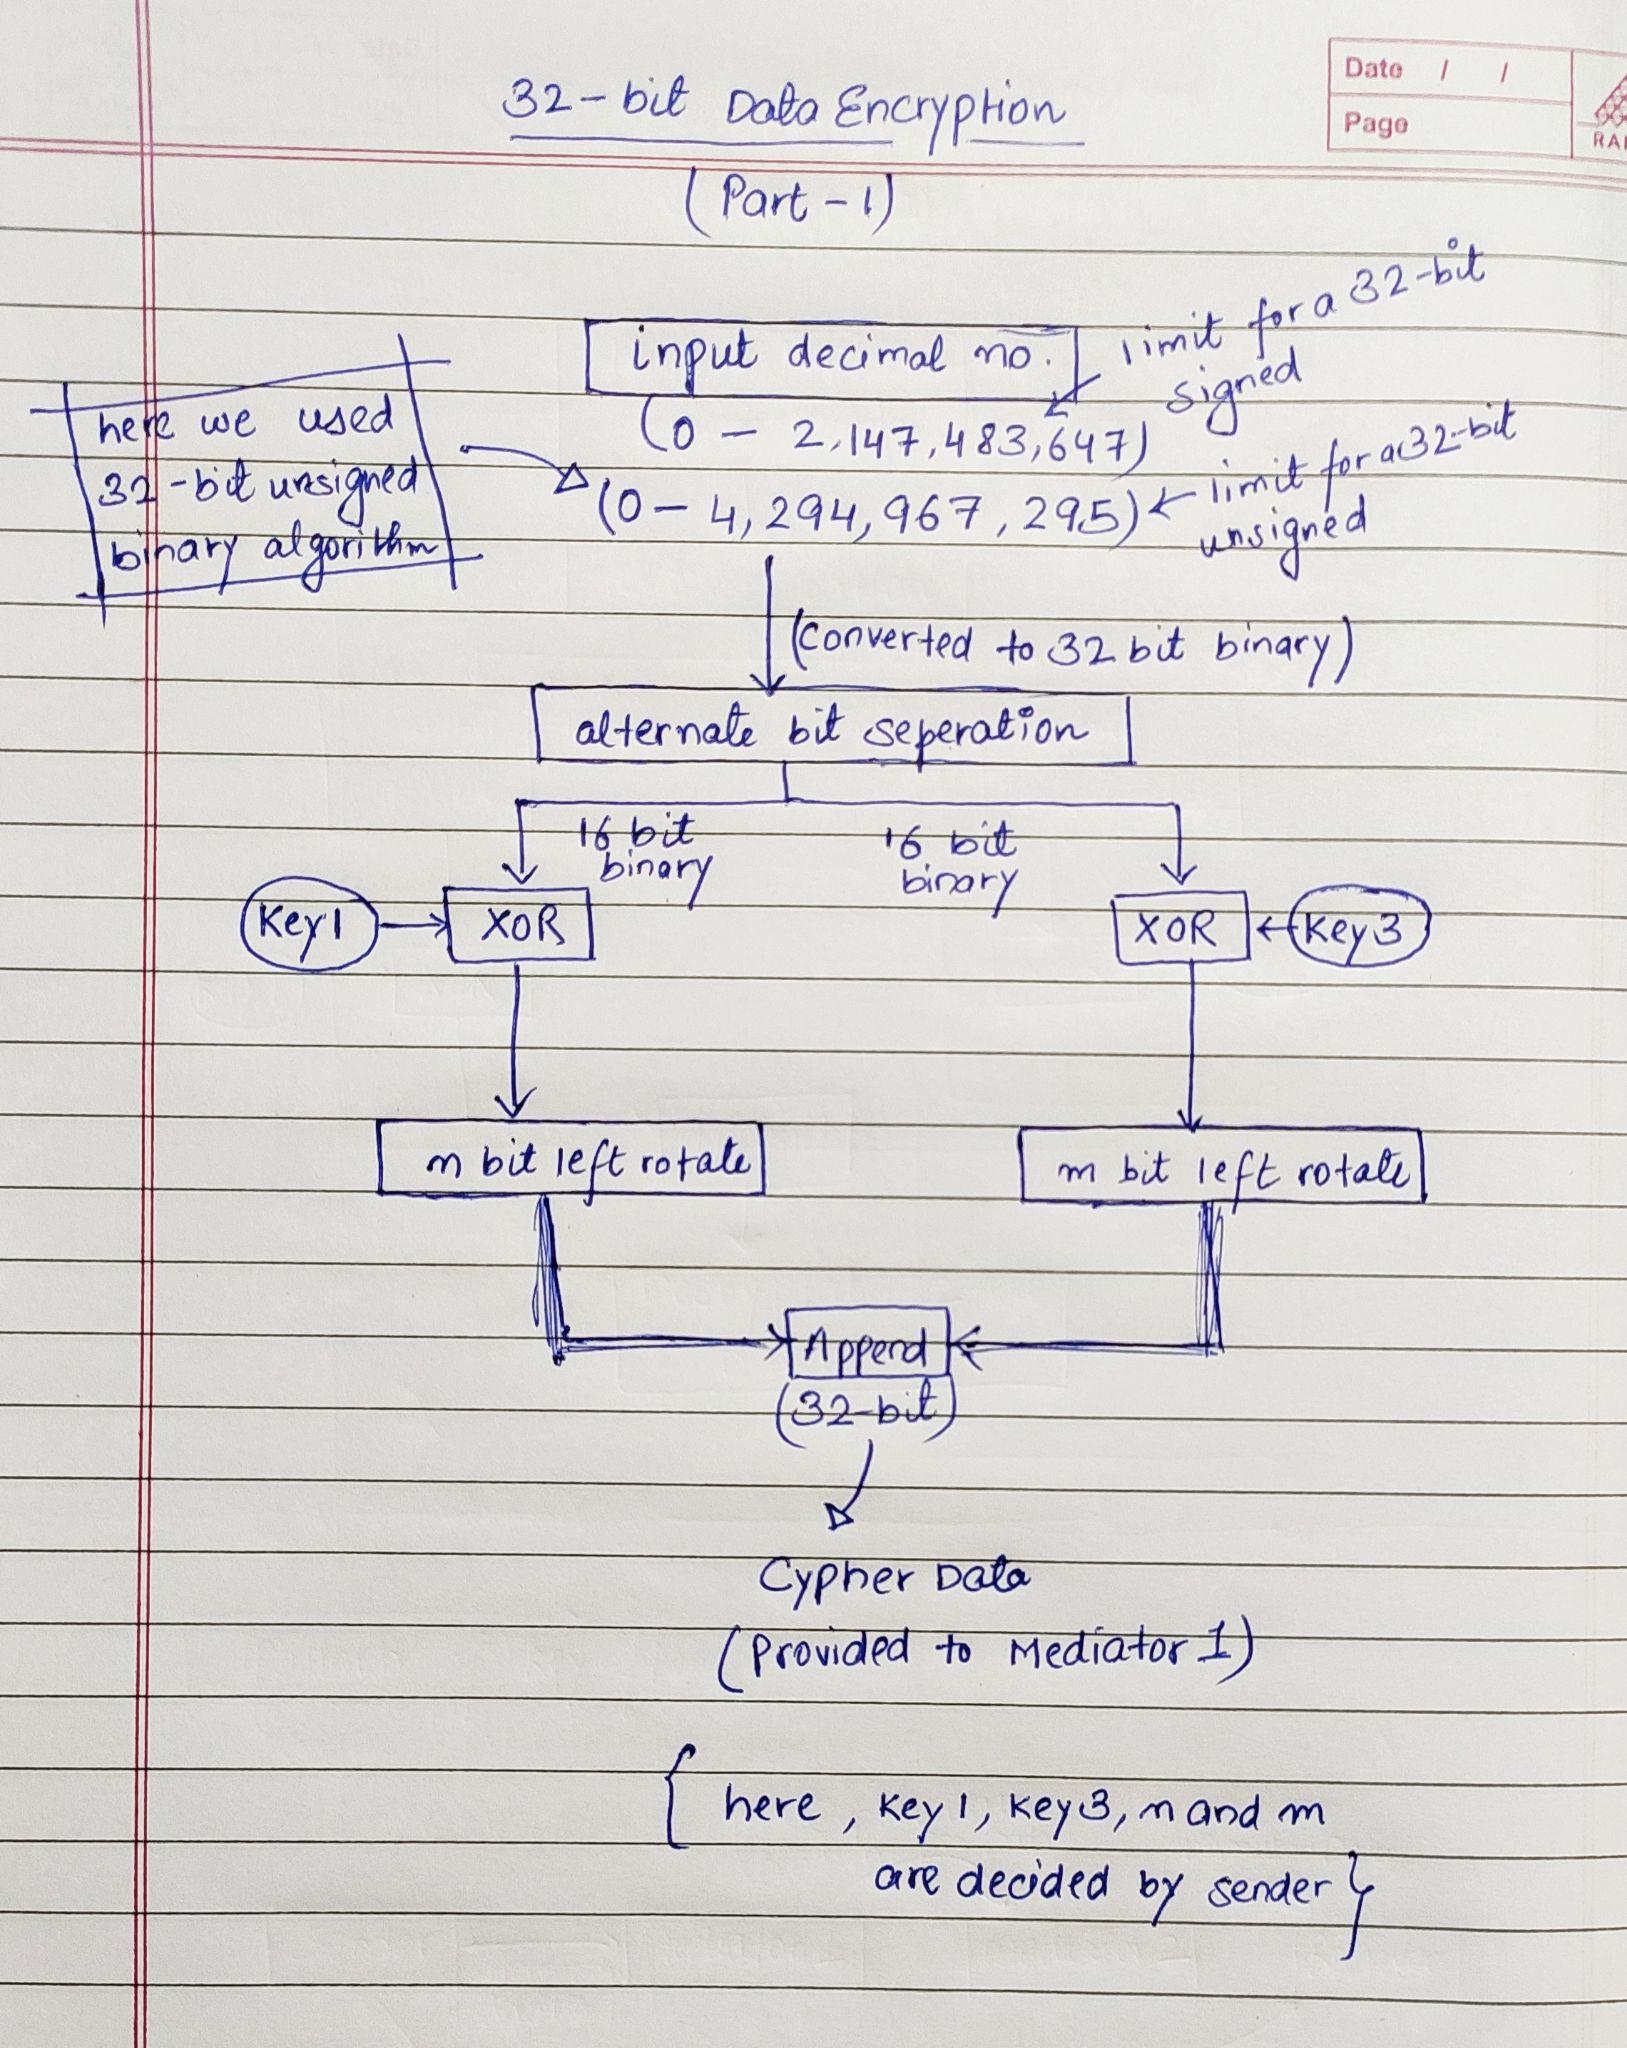 32-bit Data Encryption
Date / /
Page
RAI
(Part-1)
input decimal no.
limit for a 32-bit
signed
(0 - 2,147,483,647)
here we used
32-bit unsigned
binary algorithm
(0 - 4,294,967,295)
limit for a 32-bit
unsigned
(Converted to 32 bit binary)
alternate bit seperation
16 bit
binary
16 bit
binary
Key1
XOR
XOR
Key3
n bit left rotate
m bit left rotate
Append
(32-bit)
Cypher Data
(Provided to Mediator 1)
{ here, Key1, Key3, n and m
are decided by sender }